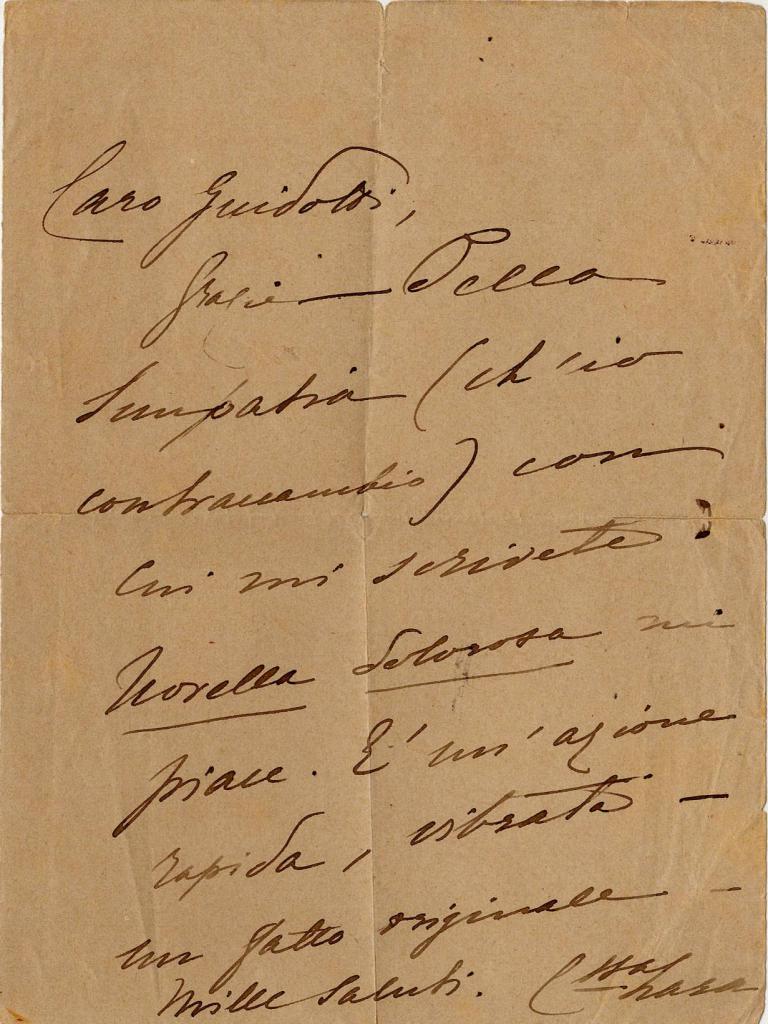 Caro Guidotti,
Grazie della
simpatia (ch'io
contraccambio) con
cui mi scrivete
Novella dolorosa mi
piace. E' un'azione
rapida, vibrata –
un fatto originale –
Mille saluti. C.ssa Lara